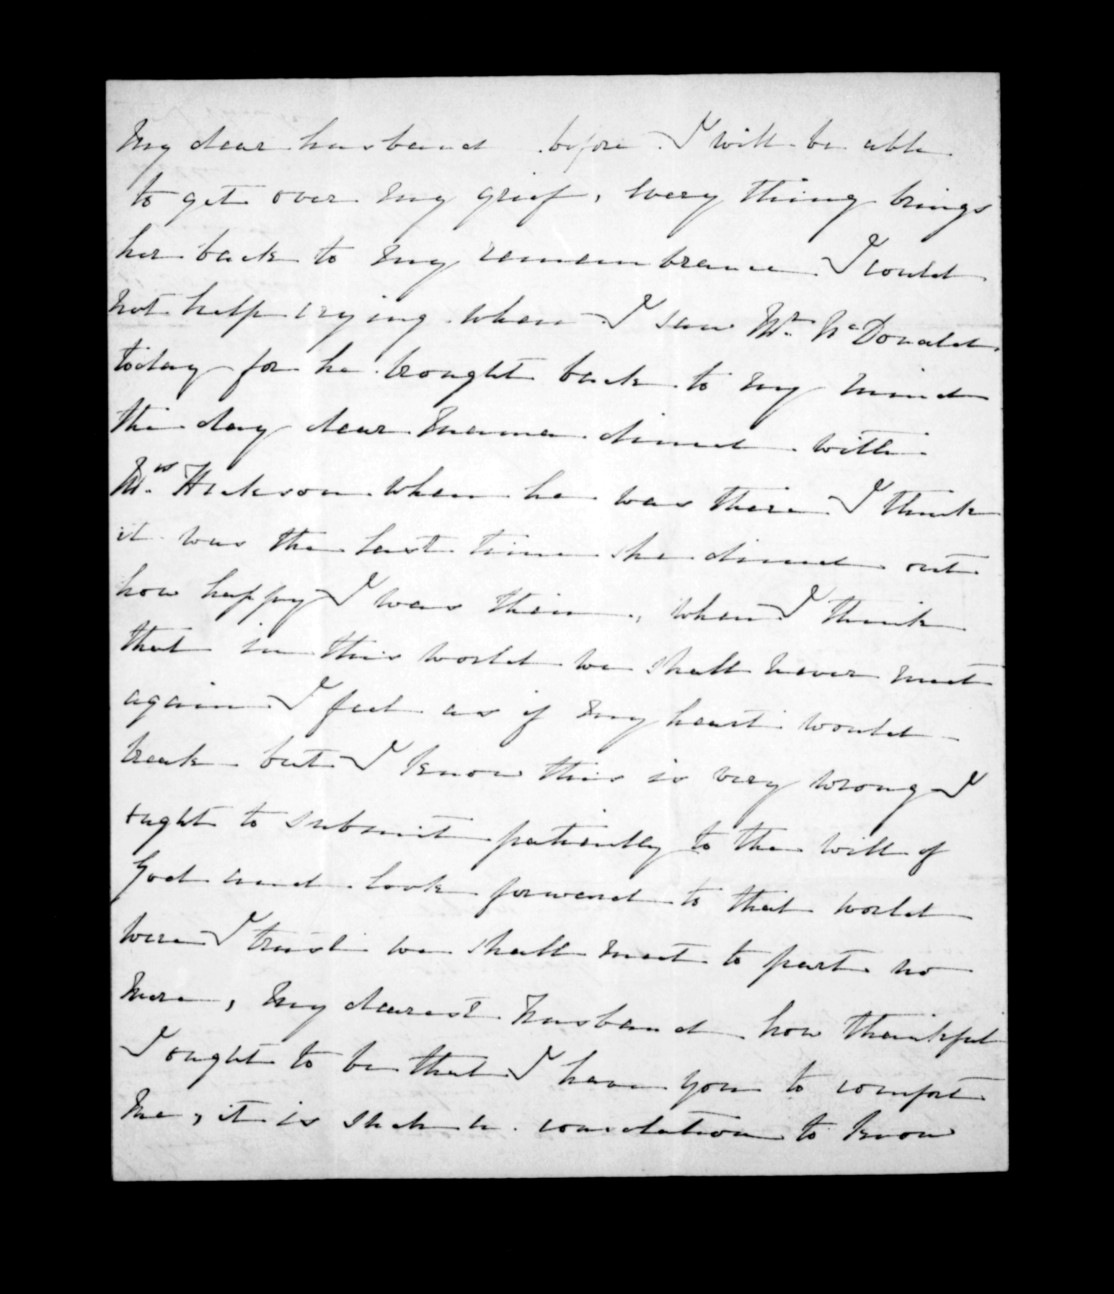 My dear husband before I will be able
to get over my grief, every thing brings
her back to my remembrance I could
not help crying when I saw Mr McDonald
today for he brought back to my mind
the day dear Mama dined with
Mrs Hickson when he was there I think
it was the last time she dined out
how happy I was then, when I think
that in this world we shall never meet
again I feel as if my heart would
break but I know this is very wrong I
ought to submit patiently to the will of
God and look forward to that world
were I trust we shall meet to part no
more, my dearest husband how thankful
I ought to be that I have you to comfort
me, it is such a consolation to know